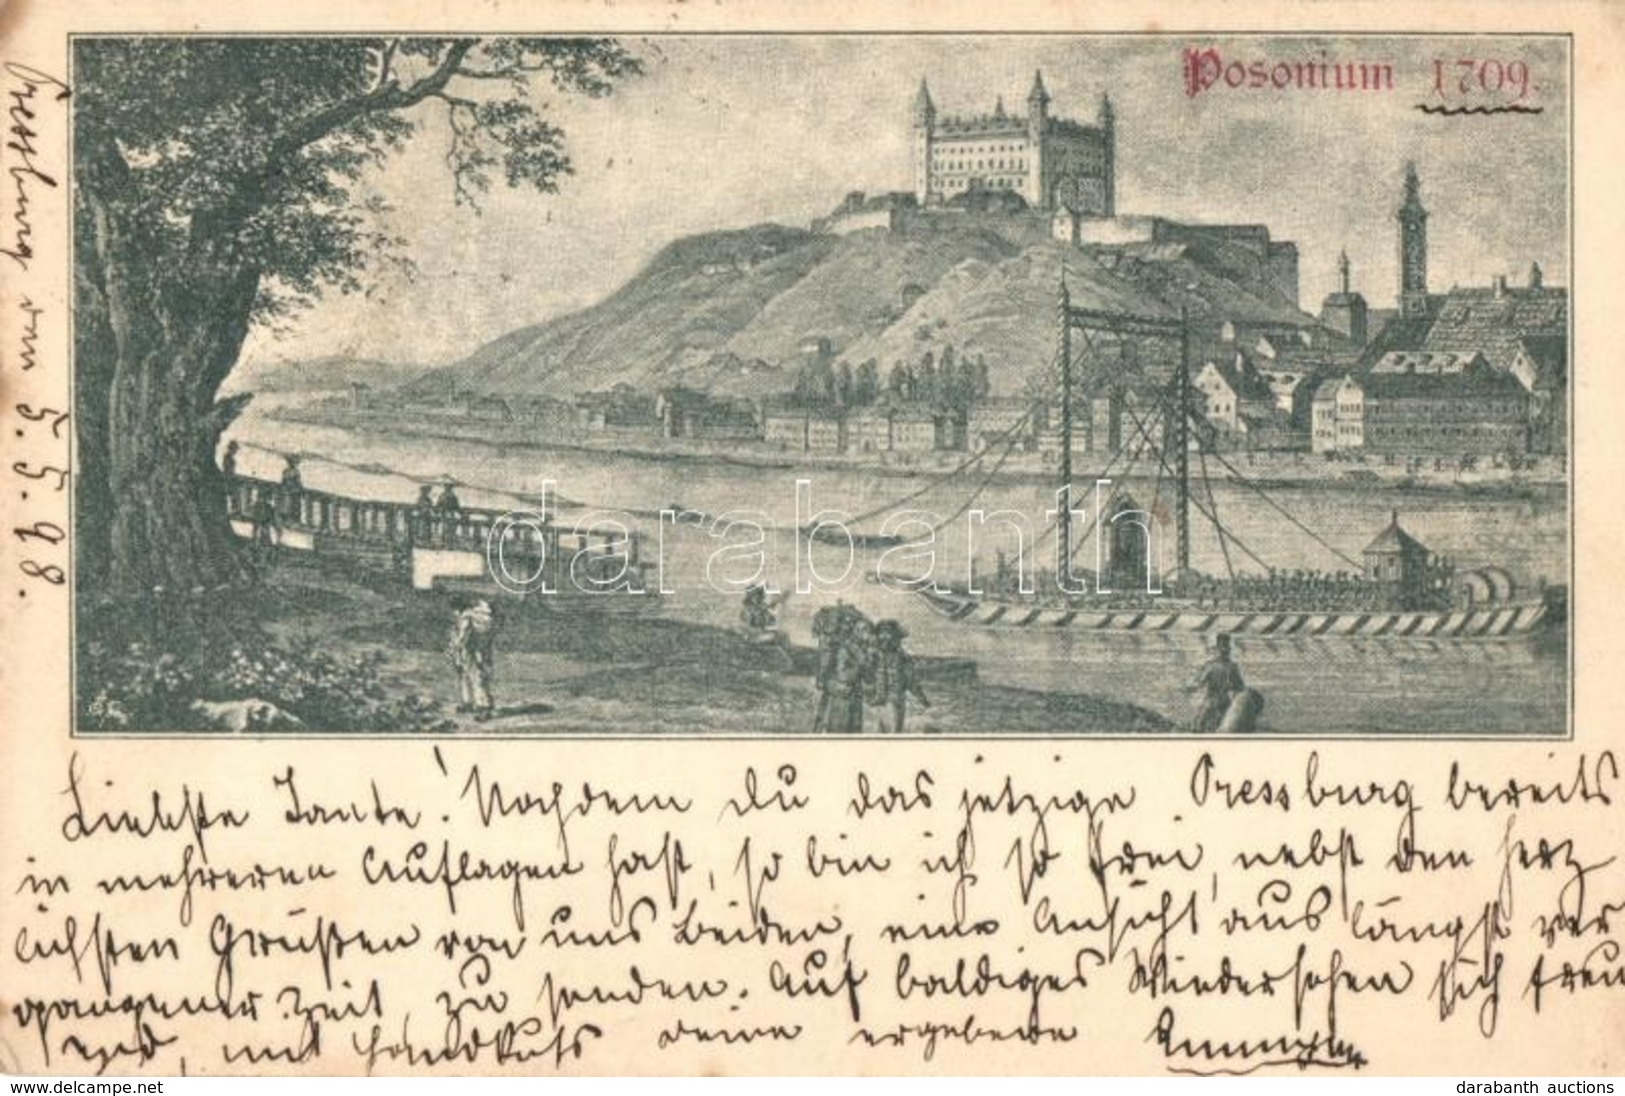 Posonium 1709.
Pressburg am 5. 5. 98.
darabanth
Liebste Tante! Nachdem du das jetzige Pressburg bereits
in mehreren Auflagen hast, so bin ich so frei, nebst den herz
lichsten Grüßen von uns Beiden, eine Ansicht aus längst ver
gangener Zeit, zu senden. Auf baldiges Wiedersehen sich freu
end, mit Handkuss deine ergebene
www.delcampe.net
darabanth auctions